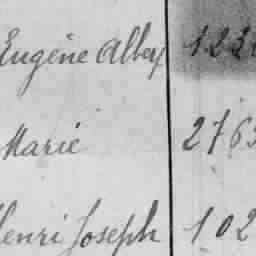 Eugène Alber 123
Marie 2763
Henri Joseph 102